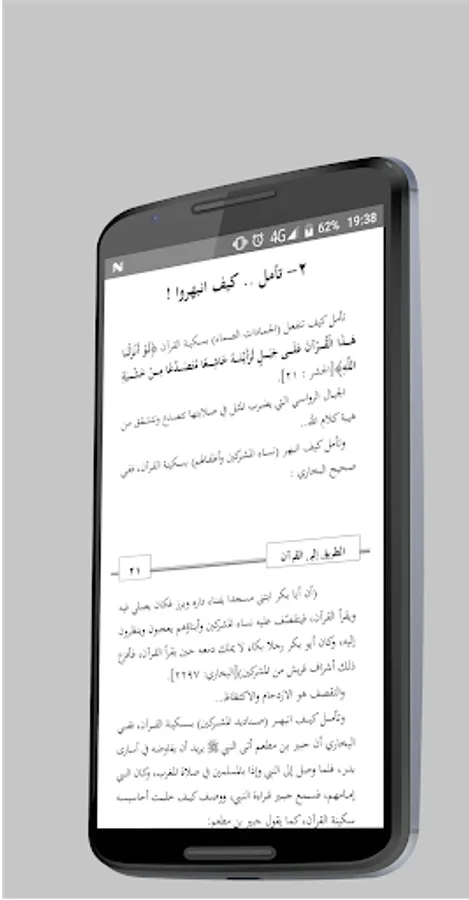 N 4G 62% 19:38
٢– تأمل .. كيف انبهروا !
تأمل كيف تنفعل (الجمادات الصماء) بسكينة القرآن ﴿لَوْ أَنْزَلْنَا
هَذَا الْقُرْآنَ عَلَى جَبَلٍ لَرَأَيْتَهُ خَاشِعًا مُتَصَدِّعًا مِنْ خَشْيَةِ
اللَّهِ﴾[الحشر : ٢١].
الجبال الرواسي التي يضرب المثل في صلابتها تتصدع وتتشقق من
هيبة كلام الله..
وتأمل كيف انبهر (نساء المشركين وأطفالهم) بسكينة القرآن، ففي
صحيح البخاري :
الطريق إلى القرآن
٢١
(أن أبا بكر ابتنى مسجدا بفناء داره وبرز فكان يصلي فيه
ويقرأ القرآن، فيتقصّف عليه نساء المشركين وأبناؤهم يعجبون وينظرون
إليه، وكان أبو بكر رجلا بكاء لا يملك دمعه حين يقرأ القرآن، فأفزع
ذلك أشراف قريش من المشركين)[البخاري: ٢٢٩٧].
والتقصف هو الازدحام والاكتظاظ..
وتأمل كيف انبهر (صناديد المشركين) بسكينة القرآن، ففي
البخاري أن جبير بن مطعم أتى النبي ﷺ يريد أن يفاوضه في أسارى
بدر، فلما وصل إلى النبي وإذا بالمسلمين في صلاة المغرب، وكان النبي
إمامهم، فسمع جبير قراءة النبي، ووصف كيف خلبت أحاسيسه
سكينة القرآن، كما يقول جبير بن مطعم: